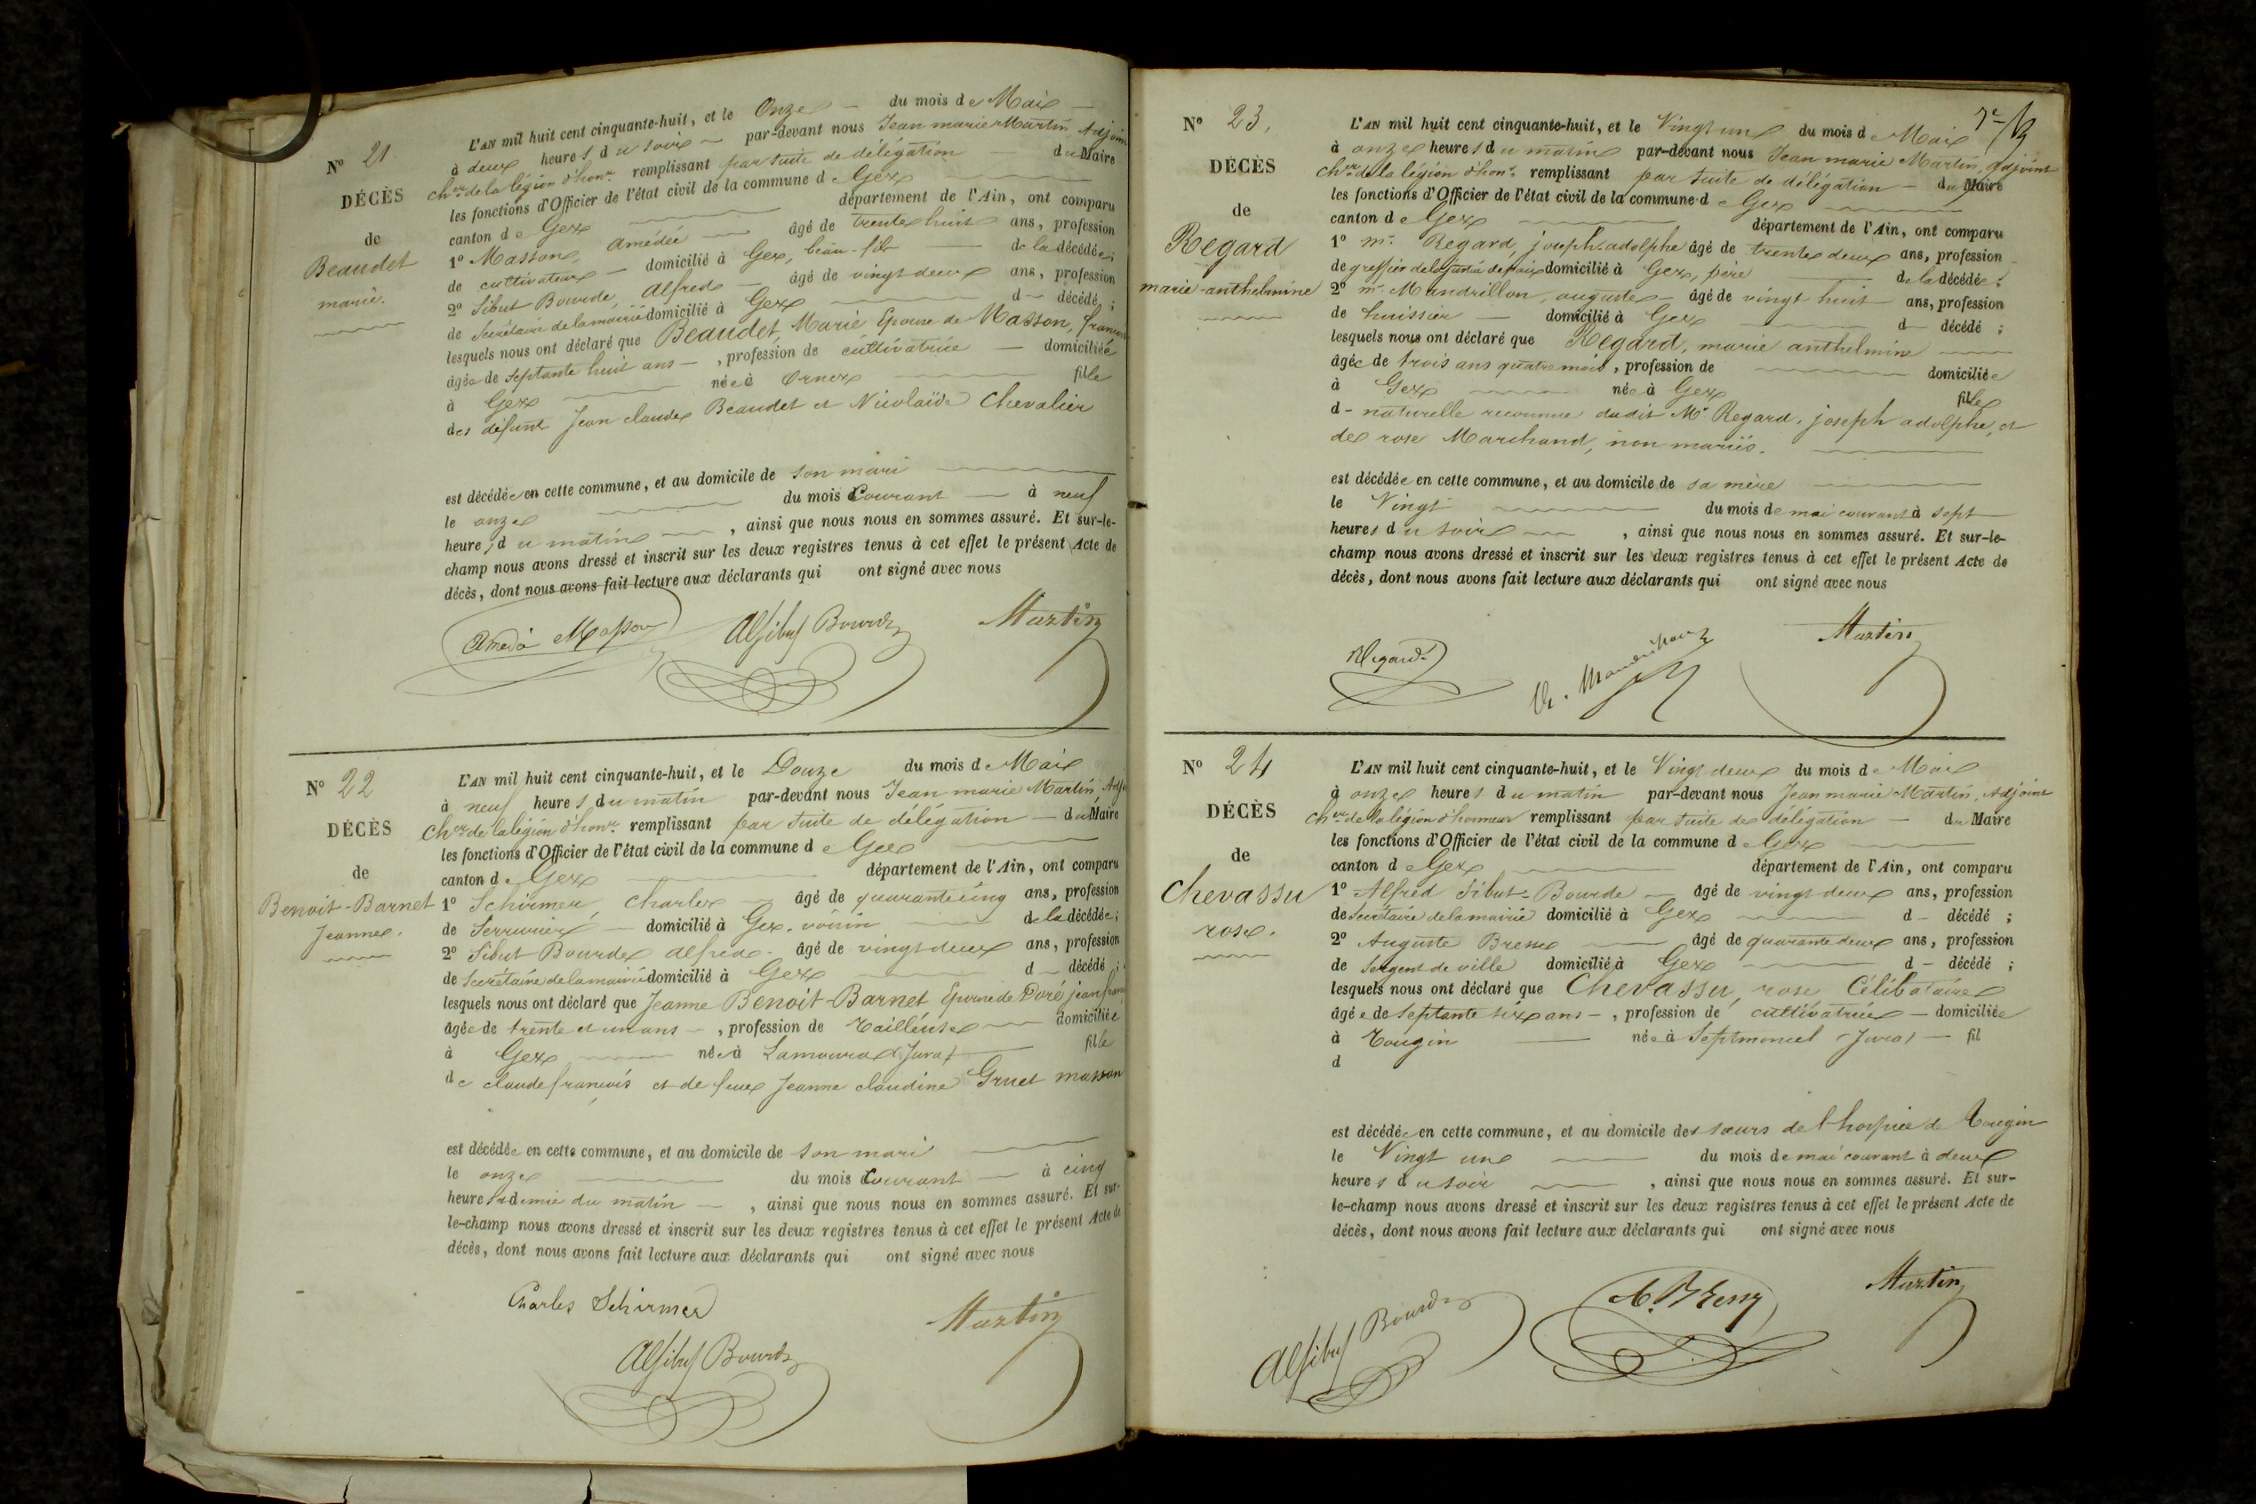 N° 21
DÉCÈS
de
Beaudet
marie.
L'AN mil huit cent cinquante-huit, et le Onze du mois de Mai
à deux heures du soir par-devant nous Jean marie Martin, Adjoint
cher de la légion d'honr. remplissant par suite de délégation du Maire
les fonctions d'Officier de l'état civil de la commune de Gex
canton de Gex département de l'Ain, ont comparu
1° Masson, amédée âgé de trente huit ans, profession
de cultivateur domicilié à Gex, beau-fils de la décédée;
2° Sibut Bourde, Alfred âgé de vingt deux ans, profession
de Secrétaire de la mairie domicilié à Gex d décédé;
lesquels nous ont déclaré que Beaudet, Marie Epouse de Masson,
âgée de septante huit ans, profession de cultivatrice domiciliée
à Gex née à Ornex fille
des défunts Jean claude Beaudet et Nicolaïde Chevalier
est décédée en cette commune, et au domicile de son mari
le onze du mois Courant à neuf
heures du matin, ainsi que nous nous en sommes assuré. Et sur-le-
champ nous avons dressé et inscrit sur les deux registres tenus à cet effet le présent Acte de
décès, dont nous avons fait lecture aux déclarants qui ont signé avec nous
Amédé Masson Alf Sibut Bourde Martin
N° 22
DÉCÈS
de
Benoit-Barnet
Jeanne.
L'AN mil huit cent cinquante-huit, et le Douze du mois de Mai
à neuf heures du matin par-devant nous Jean marie Martin, Adj
Cher de la légion d'honr. remplissant par suite de délégation du Maire
les fonctions d'Officier de l'état civil de la commune de Gex
canton de Gex département de l'Ain, ont comparu
1° Schirmer, Charles âgé de quarante cinq ans, profession
de Serrurier domicilié à Gex, voisin de la décédée;
2° Sibut Bourde alfred âgé de vingt deux ans, profession
de Secrétaire de la mairie domicilié à Gex d décédé;
lesquels nous ont déclaré que Jeanne Benoit-Barnet Epouse de Doré jean
âgée de trente et un ans, profession de Tailleuse domiciliée
à Gex née à Lamoura (Jura) fille
de claude françois et de feue Jeanne claudine Gruet masson
est décédée en cette commune, et au domicile de son mari
le onze du mois Courant à cinq
heures et demie du matin, ainsi que nous nous en sommes assuré. Et sur-
le-champ nous avons dressé et inscrit sur les deux registres tenus à cet effet le présent Acte de
décès, dont nous avons fait lecture aux déclarants qui ont signé avec nous
Charles Schirmer Martin
Alf Sibut Bourde
N° 23.
DÉCÈS
de
Regard
marie-anthelmine
L'AN mil huit cent cinquante-huit, et le Vingt un du mois de Mai
à onze heures du matin par-devant nous Jean marie Martin, adjoint
cher de la légion d'honr. remplissant par suite de délégation du Maire
les fonctions d'Officier de l'état civil de la commune de Gex
canton de Gex département de l'Ain, ont comparu
1° mr. Regard, joseph-adolphe âgé de trente deux ans, profession
de greffier de la justice de paix domicilié à Gex, père de la décédée;
2° mr. Mandrillon, auguste âgé de vingt huit ans, profession
de huissier domicilié à Gex d décédé;
lesquels nous ont déclaré que Regard, marie anthelmine
âgée de trois ans quatre mois, profession de domiciliée
à Gex née à Gex fille
d- naturelle reconnue dudit Mr. Regard, joseph adolphe, et
de rose Marchand, non mariés.
est décédée en cette commune, et au domicile de sa mère
le Vingt du mois de mai courant à sept
heures du soir, ainsi que nous nous en sommes assuré. Et sur-le-
champ nous avons dressé et inscrit sur les deux registres tenus à cet effet le présent Acte de
décès, dont nous avons fait lecture aux déclarants qui ont signé avec nous
Regard Mandrillon Martin
N° 24
DÉCÈS
de
Chevassu
rose.
L'AN mil huit cent cinquante-huit, et le Vingt deux du mois de Mai
à onze heures du matin par-devant nous Jean marie Martin, Adjoint
cher de la légion d'honneur remplissant par suite de délégation du Maire
les fonctions d'Officier de l'état civil de la commune de Gex
canton de Gex département de l'Ain, ont comparu
1° Alfred Sibut-Bourde âgé de vingt deux ans, profession
de Secrétaire de la mairie domicilié à Gex d- décédé;
2° Auguste Bresse âgé de quarante deux ans, profession
de Sergent de ville domicilié à Gex d- décédé;
lesquels nous ont déclaré que Chevassu, rose Célibataire
âgée de septante six ans, profession de cultivatrice domiciliée
à Tougin née à Septmoncel (Jura) fil
d
est décédée en cette commune, et au domicile des sœurs de l'hospice de Tougin
le Vingt un du mois de mai courant à deux
heures du soir, ainsi que nous nous en sommes assuré. Et sur-
le-champ nous avons dressé et inscrit sur les deux registres tenus à cet effet le présent Acte de
décès, dont nous avons fait lecture aux déclarants qui ont signé avec nous
Alf Sibut Bourde Martin